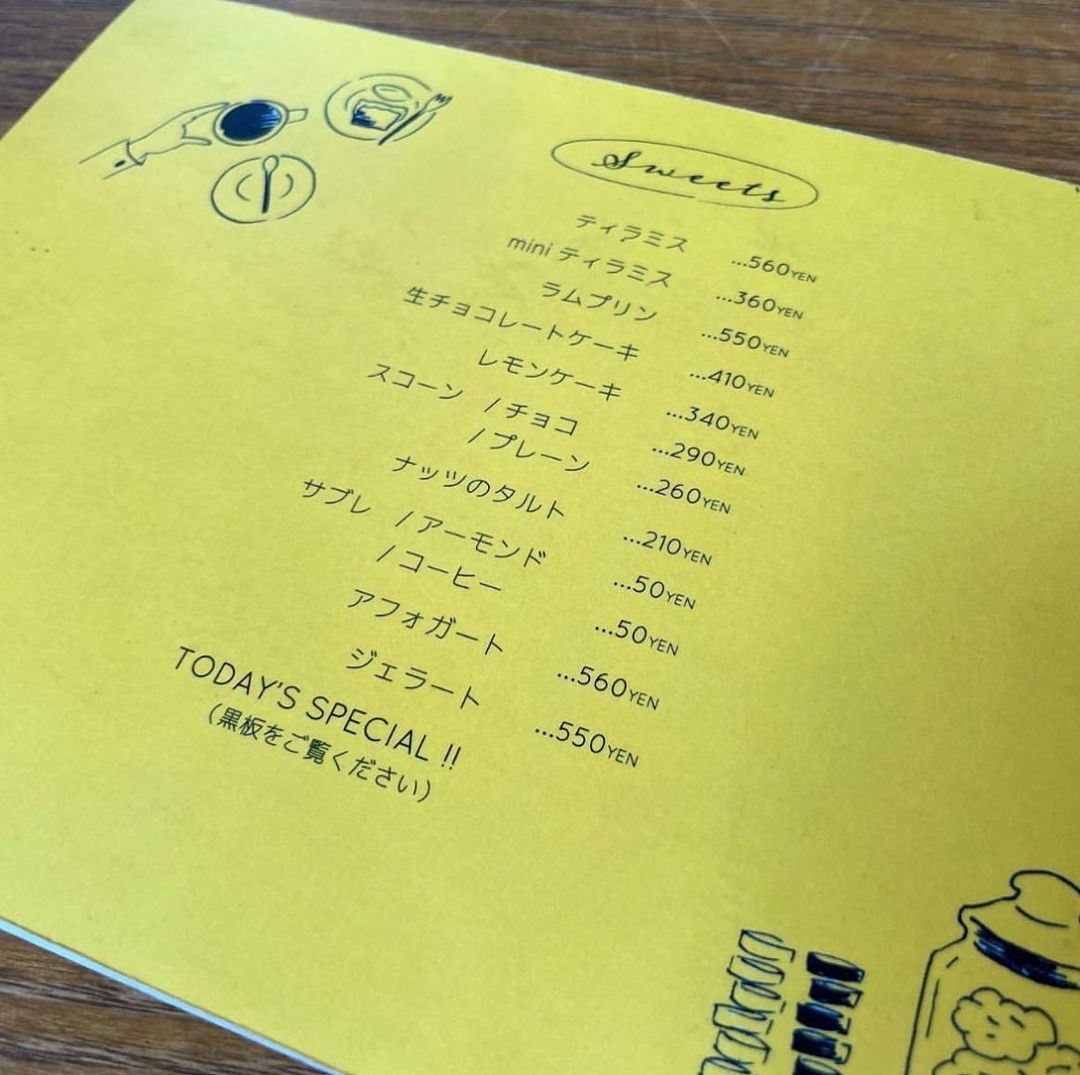 Sweets
ティラミス ...560YEN
mini ティラミス ...360YEN
ラムプリン ...550YEN
生チョコレートケーキ ...410YEN
レモンケーキ ...340YEN
スコーン / チョコ ...290YEN
/ プレーン ...260YEN
ナッツのタルト ...210YEN
サブレ / アーモンド ...50YEN
/ コーヒー ...50YEN
アフォガート ...560YEN
ジェラート ...550YEN
TODAY'S SPECIAL !!
(黒板をご覧ください)